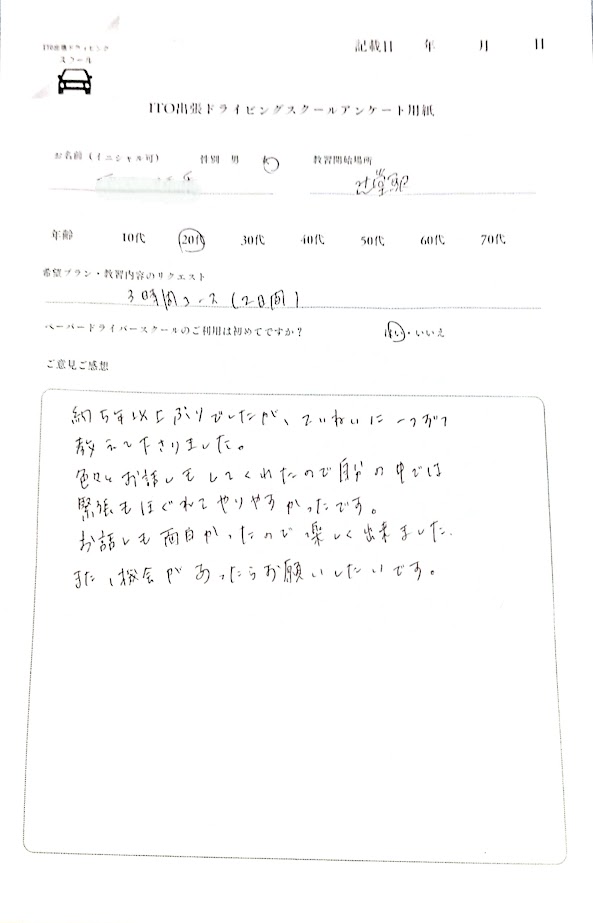 ITO出張ドライビング
スクール
記載日 年 月 日
ITO出張ドライビングスクールアンケート用紙
お名前(イニシャル可) 性別 男 教習開始場所
辻堂駅
年齢 10代 20代 30代 40代 50代 60代 70代
希望プラン・教習内容のリクエスト
3時間コース(2日間)
ペーパードライバースクールのご利用は初めてですか? はい・いいえ
ご意見ご感想
約5年以上ぶりでしたが、ていねいに一つずつ
教えて下さりました。
色々とお話しもしてくれたので自分の中では
緊張もほぐれてやりやすかったです。
お話しも面白かったので楽しく出来ました。
また機会があったらお願いしたいです。